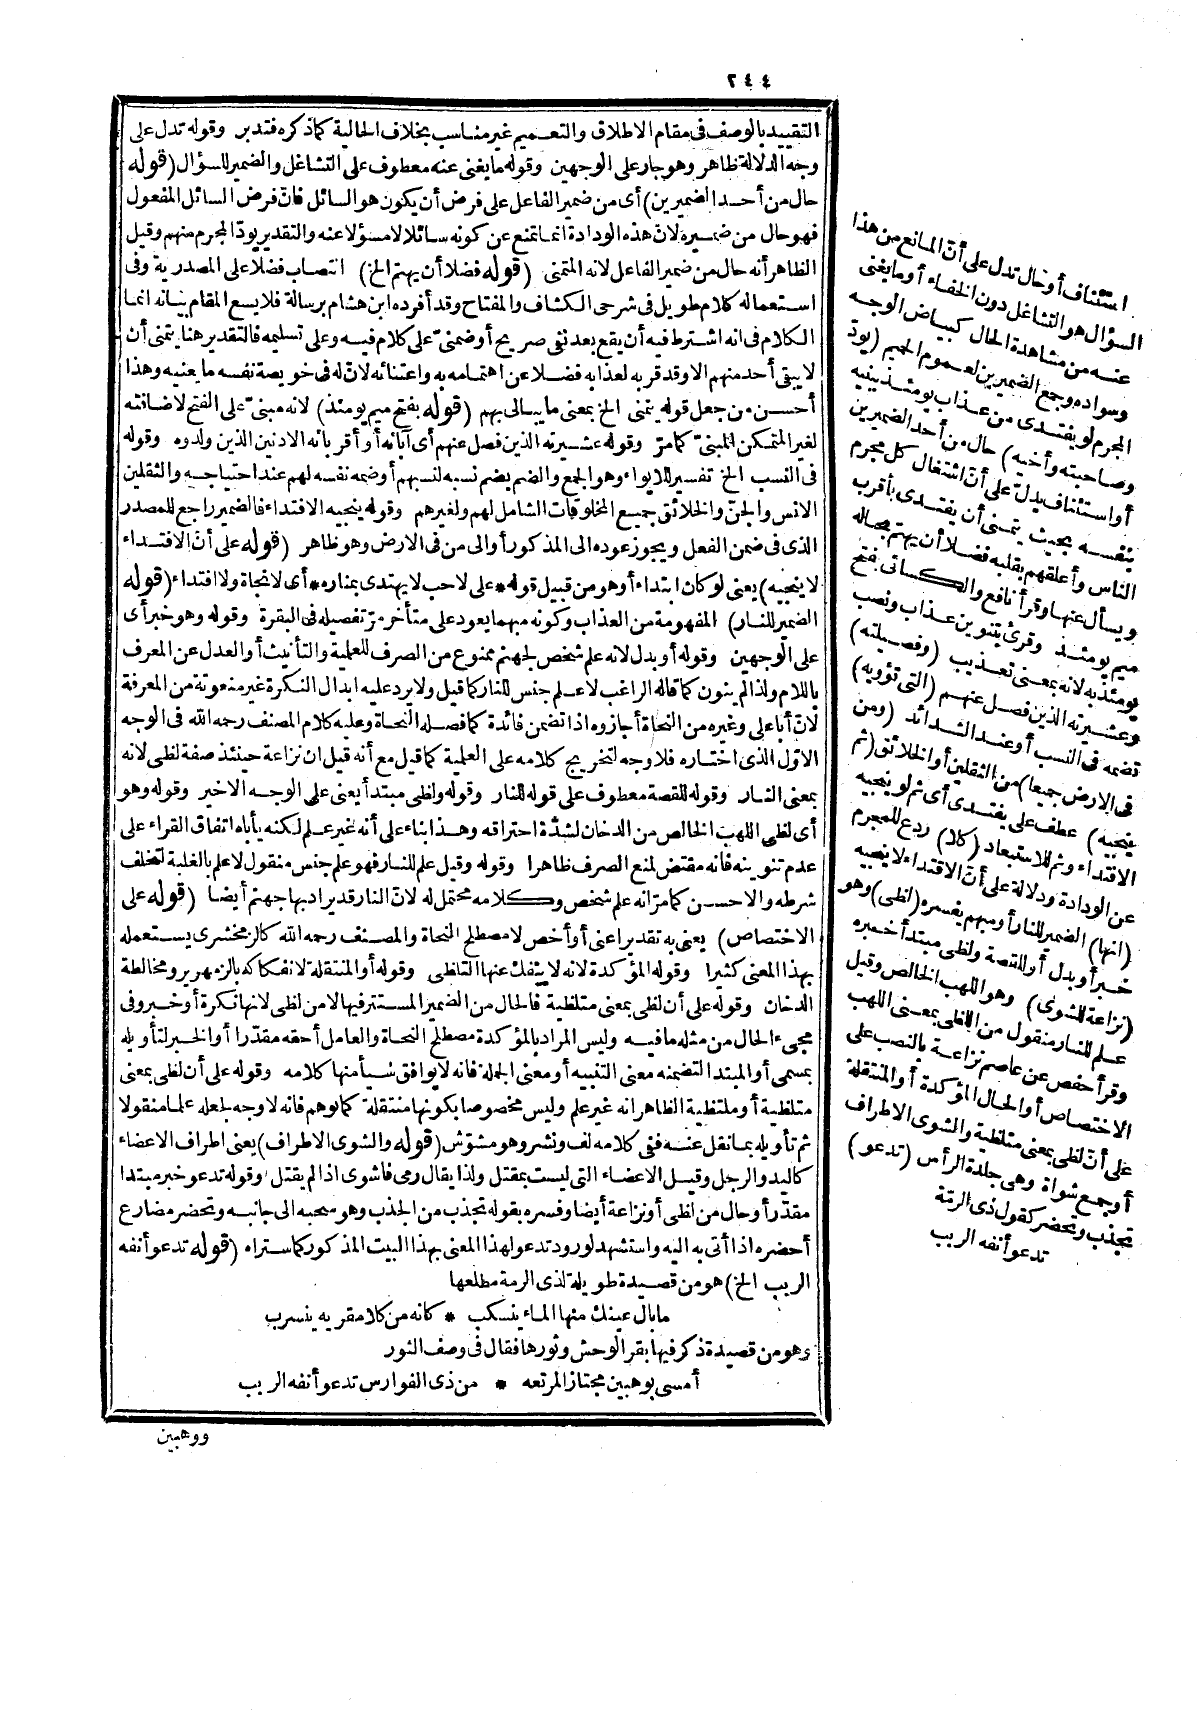 ٢٤٤
التقييد بالوصف فى مقام الاطلاق والتعميم غير مناسب بخلاف الحالية كما ذكره فتدبر وقوله تدل على
وجه الدلالة ظاهر وهو جار على الوجهين وقوله ما يغنى عنه معطوف على التشاغل والضمير للسؤال (قوله
حال من أحد الضميرين) أى من ضمير الفاعل على فرض أن يكون هو السائل فان فرض السائل المفعول
فهو حال من ضميره لان هذه الودادة انما تمنع عن كونه سائلا لا مسؤلا عنه والتقدير يودّ المجرم منهم وقيل
الظاهر أنه حال من ضمير الفاعل لانه المتمنى (قوله فضلا أن يهتم الخ) انتصاب فضلا على المصدرية وفى
استعماله كلام طويل فى شرحى الكشاف والمفتاح وقد أفرده ابن هشام برسالة فلا يسع المقام بيانه انما
الكلام فى انه اشترط فيه أن يقع بعد نفى صريح أو ضمنىّ على كلام فيه وعلى تسليمه فالتقدير هنا يتمنى أن
لا يبقى أحد منهم الا وقد قربه لعذابه فضلا عن اهتمامه به واعتنائه لانّ له فى خويصة نفسه ما يعنيه وهذا
أحسن من جعل قوله يتمنى الخ بمعنى ما يبالى بهم (قوله بفتح ميم يومئذ) لانه مبنىّ على الفتح لاضافته
لغير المتمكن المبنىّ كما مرّ وقوله عشيرته الذين فصل عنهم أى آبائه أو أقربائه الادنين الذين ولدوه وقوله
فى النسب الخ تفسير للايواء وهو الجمع والضم بضم نسبه لنسبهم أو ضمه نفسه لهم عند احتياجه والثقلين
الانس والجنّ والخلائق جميع المخلوقات الشامل لهم ولغيرهم وقوله ينجيه الافتداء فالضمير راجع للمصدر
الذى فى ضمن الفعل ويجوز عوده الى المذكور أو الى من فى الارض وهو ظاهر (قوله على أنّ الافتداء
لا ينجيه) يعنى لو كان ابتداء أو هو من قبيل قوله * على لاحب لا يهتدى بمناره * أى لا نجاة ولا افتداء (قوله
الضمير للنار) المفهومة من العذاب وكونه مبهما يعود على متأخر مرّ تفصيله فى البقرة وقوله وهو خبر أى
على الوجهين وقوله أو بدل لانه علم شخص لجهنم ممنوع من الصرف للعلمية والتأنيث أو العدل عن المعرف
باللام ولذا لم ينون كما قاله الراغب لا علم جنس للنار كما قيل ولا يرد عليه ابدال النكرة غير منعوتة من المعرفة
لانّ أبا على وغيره من النحاة أجازوه اذا تضمن فائدة كما فصله النحاة وعليه كلام المصنف رحمه الله فى الوجه
الاوّل الذى اختاره فلا وجه لتخريج كلامه على العلمية كما قيل مع أنه قيل ان نزاعة حينئذ صفة لظى لانه
بمعنى النار وقوله للقصة معطوف على قوله للنار وقوله ولظى مبتدأ يعنى على الوجه الاخير وقوله وهو
أى لظى اللهب الخالص من الدخان لشدّة احتراقه وهذا بناء على أنه غير علم لكنه يأباه اتفاق القراء على
عدم تنوينه فانه مقتض لمنع الصرف ظاهرا وقوله وقيل علم للنار فهو علم جنس منقول لا علم بالغلبة لتخلف
شرطه والاحسن كما مرّ انه علم شخص وكلامه محتمل له لانّ النار قد يراد بها جهنم أيضا (قوله على
الاختصاص) يعنى به تقدير اعنى أو أخص لا مصطلح النحاة والمصنف رحمه الله كالزمخشرى يستعمله
بهذا المعنى كثيرا وقوله المؤكدة لانه لا ينفك عنها التلظى وقوله أو المنتقلة لانفكاكه بالزمهرير ومخالطة
الدخان وقوله على أن لظى بمعنى متلظية فالحال من الضمير المستتر فيها لا من لظى لانها نكرة أو خبر وفى
مجىء الحال من مثله ما فيه وليس المراد بالمؤكدة مصطلح النحاة والعامل أحقه مقدّرا أو الخبر لتأويله
بمسمى أو المبتدا لتضمنه معنى التنبيه أو معنى الجملة فانه لا يوافق شيأ منها كلامه وقوله على أن لظى بمعنى
متلظية أو ملتظية الظاهر انه غير علم وليس مخصوصا بكونها منتقلة كما توهم فانه لا وجه لجعله علما منقولا
ثم تأويله بما نقل عنه ففى كلامه لف ونشر وهو مشوّش (قوله والشوى الاطراف) يعنى اطراف الاعضاء
كاليد والرجل وقيل الاعضاء التى ليست بمقتل ولذا يقال رمى فاشوى اذا لم يقتل وقوله تدعو خبر مبتدا
مقدّر أو حال من لظى أو نزاعة أيضا وفسره بقوله تجذب من الجذب وهو سحبه الى جانبه وتحضر مضارع
أحضره اذا أتى به اليه واستشهد لورود تدعو لهذا المعنى بهذا البيت المذكور كما ستراه (قوله تدعو أنفه
الربب الخ) هو من قصيدة طويلة لذى الرمة مطلعها
ما بال عينك منها الماء ينسكب * كانه من كلا مفرية ينسرب
وهو من قصيدة ذكر فيها بقر الوحش وثورها فقال فى وصف الثور
أمسى بوهبين مجتازا لمرتعه * من ذى الفوارس تدعو أنفه الربب
ووهبين
استئناف أو حال تدل على أنّ المانع من هذا
السؤال هو التشاغل دون الخفاء أو ما يغنى
عنه من مشاهدة الحال كبياض الوجه
وسواده وجمع الضميرين لعموم الحميم (يودّ
المجرم لو يفتدى من عذاب يومئذ ببنيه
وصاحبته وأخيه) حال من أحد الضميرين
أو استئناف يدلّ على أنّ اشتغال كل مجرم
بنفسه بحيث يتمنى أن يفتدى بأقرب
الناس وأعلقهم بقلبه فضلا أن يهتم بحاله
ويسأل عنها وقرأ نافع والكسائى بفتح
ميم يومئذ وقرئ بتنوين عذاب ونصب
يومئذ به لانه بمعنى تعذيب (وفصيلته)
وعشيرته الذين فصل عنهم (التى تؤويه)
تضمه فى النسب أو عند الشدائد (ومن
فى الارض جميعا) من الثقلين أو الخلائق (ثم
ينجيه) عطف على يفتدى أى ثم لو ينجيه
الافتداء وثم للاستبعاد (كلا) ردع للمجرم
عن الودادة ودلالة على أنّ الافتداء لا ينجيه
(انها) الضمير للنار أو مبهم يفسره (لظى) وهو
خبر أو بدل أو للقصة ولظى مبتدأ خبره
(نزاعة للشوى) وهو اللهب الخالص وقيل
علم للنار منقول من اللظى بمعنى اللهب
وقرأ حفص عن عاصم نزاعة بالنصب على
الاختصاص أو الحال المؤكدة أو المنتقلة
على أنّ لظى بمعنى متلظية والشوى الاطراف
أو جمع شواة وهى جلدة الرأس (تدعو)
تجذب وتحضر كقول ذى الرمّة
تدعو أنفه الربب